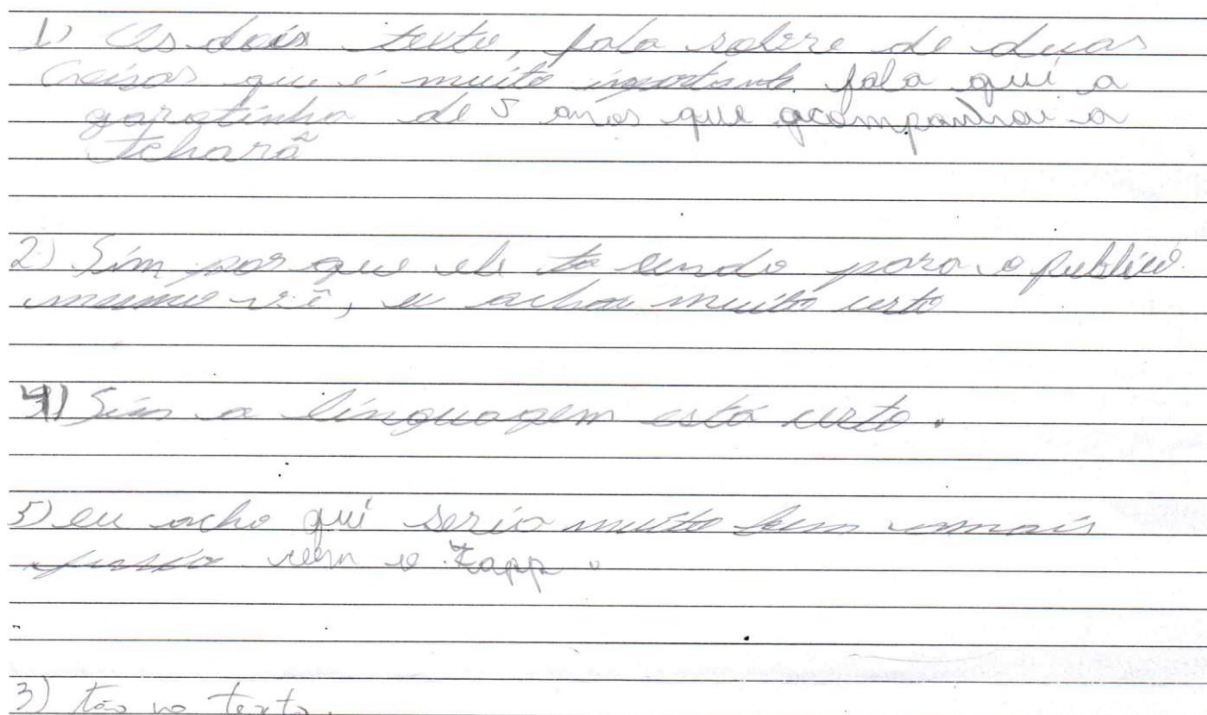 1) Os dois texto, fala sobre de duas
Coisas que é muito importante. fala qui a
garotinha de 5 anos que acompanhou a
Teharã
2) Sim por que ele to lendo para o publico
mesmo vê, eu achou muito certo
4) Sim a linguagem está certo.
5) eu acho qui seria muito bem emais
com o zapp.
3) tão no texto.